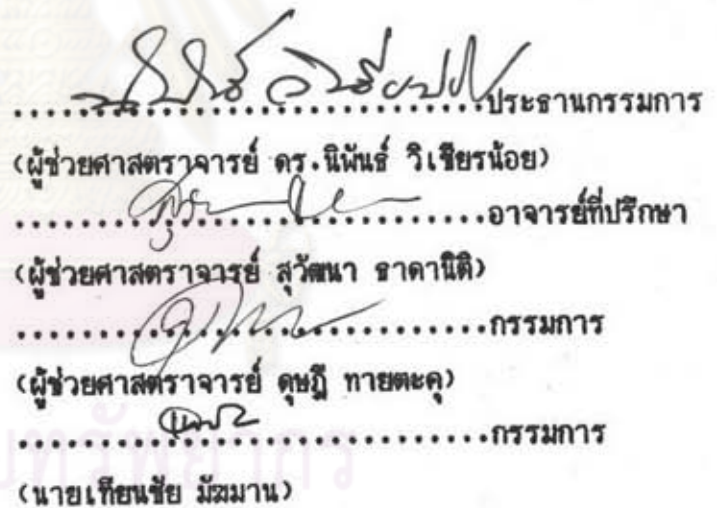 ...............................ประธานกรรมการ
(ผู้ช่วยศาสตราจารย์ ดร.นิพันธ์ วิเชียรน้อย)
...............................อาจารย์ที่ปรึกษา
(ผู้ช่วยศาสตราจารย์ สุวัฒนา ธาดานิติ)
...............................กรรมการ
(ผู้ช่วยศาสตราจารย์ ดุษฎี ทายตะคุ)
...............................กรรมการ
(นายเทียนชัย มัฆมาน)